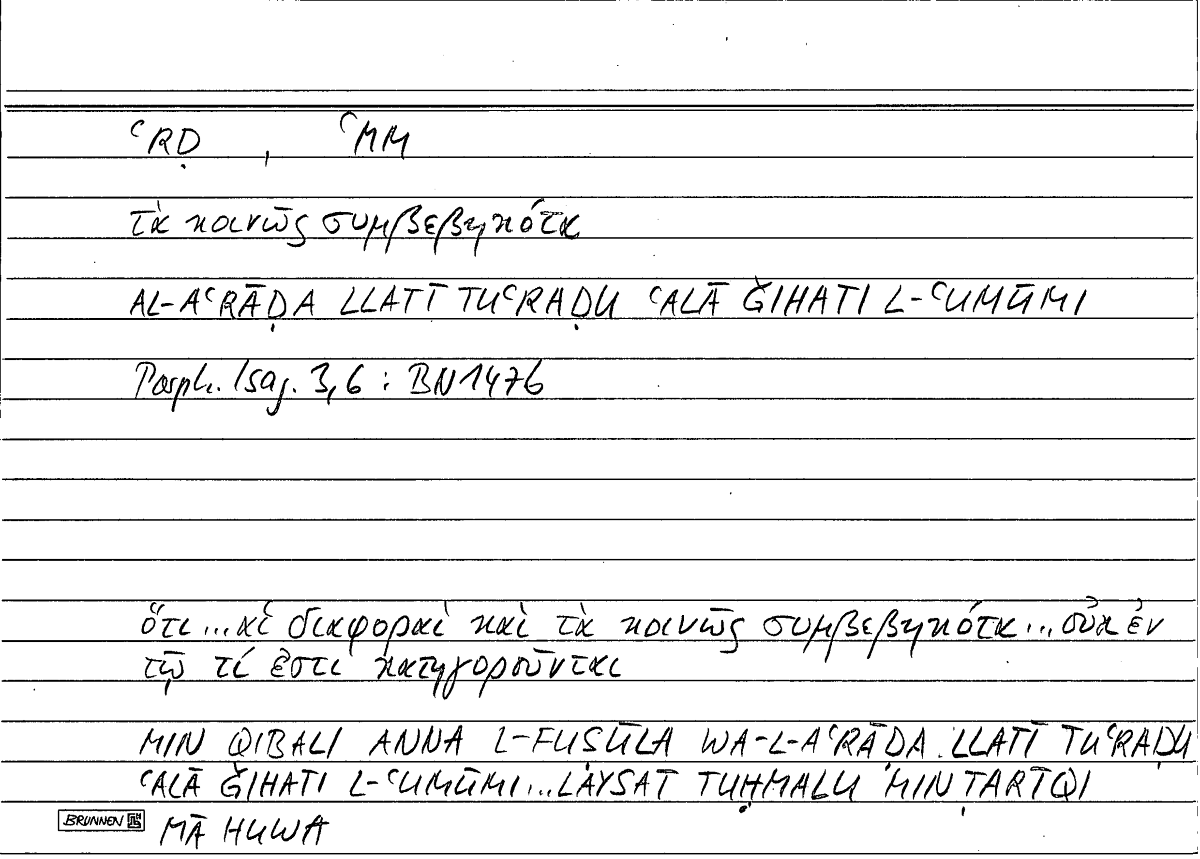 ʿRḌ , ʿMM
τὰ κοινῶς συμβεβηκότα
AL-AʿRĀḌA LLATĪ TUʿRAḌU ʿALĀ ǦIHATI L-ʿUMŪMI
Porph. Isag. 3,6 : BN 1476
ὅτι ... αἱ διαφοραὶ καὶ τὰ κοινῶς συμβεβηκότα ... οὐκ ἐν
τῷ τί ἐστι κατηγοροῦνται
MIN QIBALI ANNA L-FUṢŪLA WA-L-AʿRĀḌA LLATĪ TUʿRAḌU
ʿALĀ ǦIHATI L-ʿUMŪMI ... LAYSAT TUḤMALU MIN ṬARĪQI
BRUNNEN MĀ HUWA